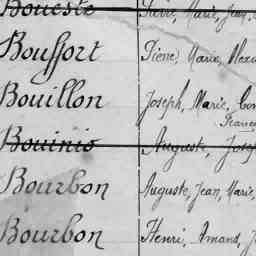 Boueste Pierre, Marie, Jean,
Bouffort Pierre, Marie, Alexa
Bouillon Joseph, Marie,
Franç
Bouinis Auguste, Josep
Bourbon Auguste, Jean, Marie,
Bourbon Henri, Amand, J